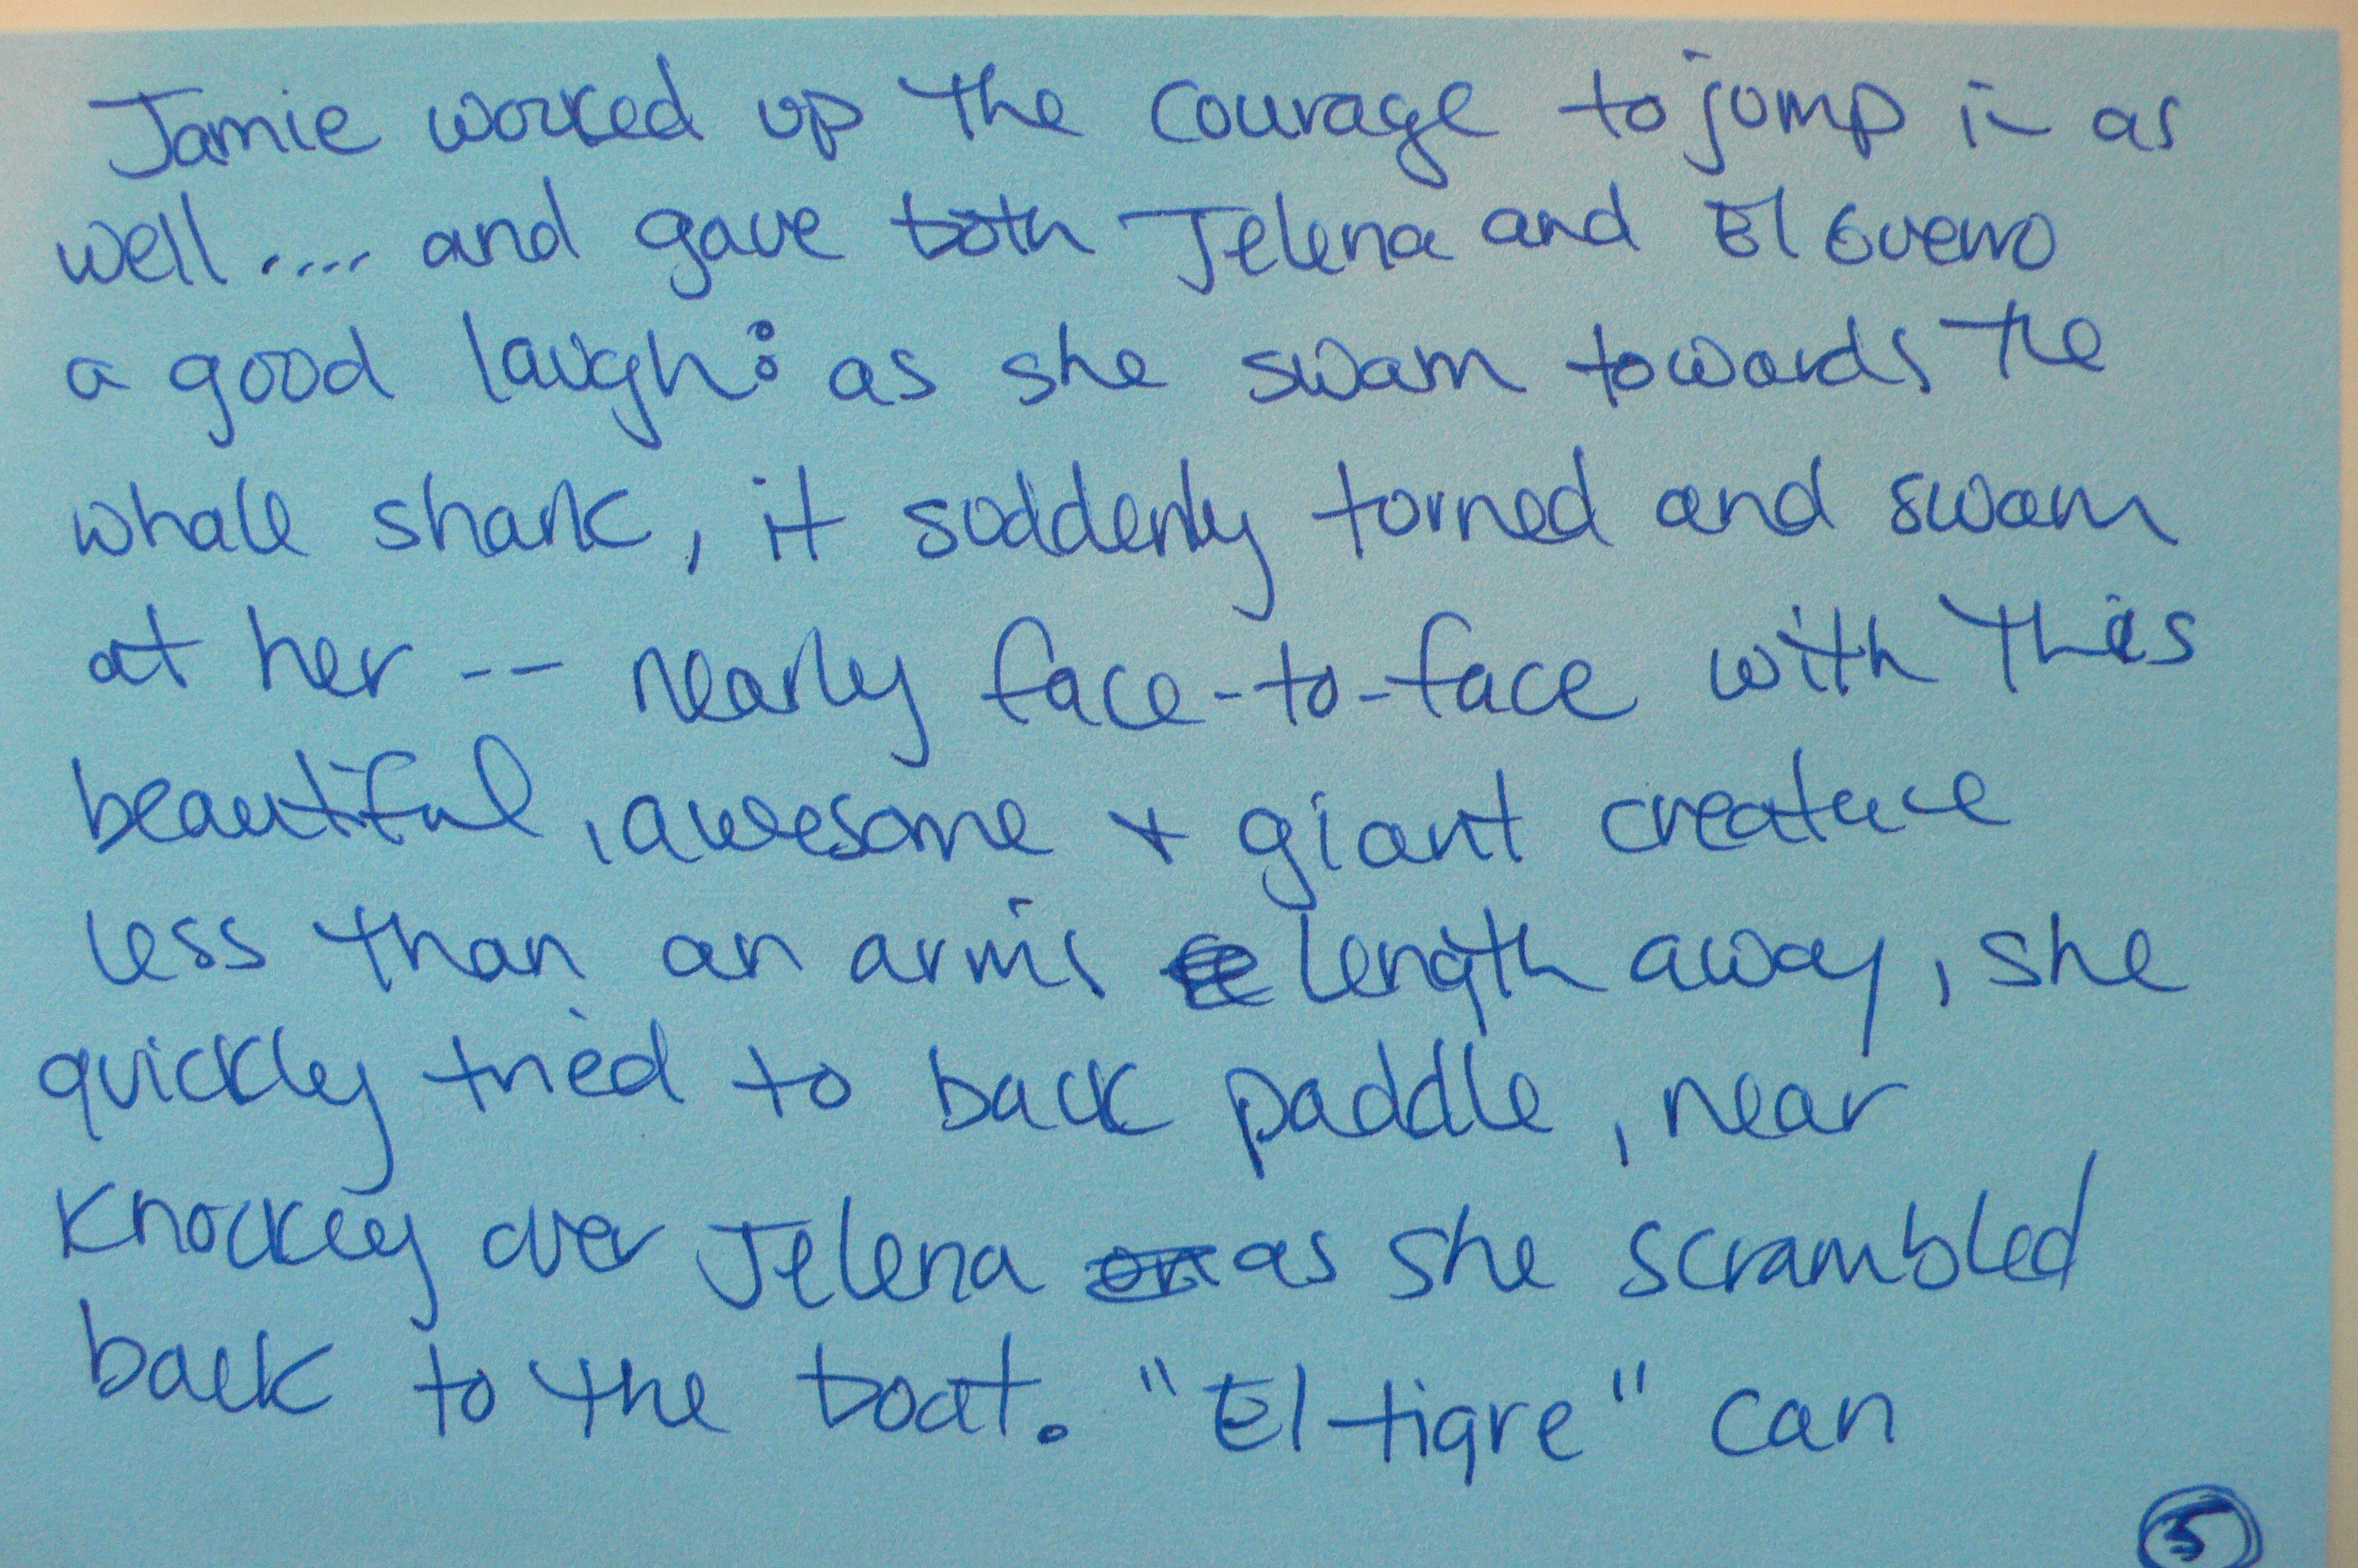 Jamie worked up the courage to jump in as
well.... and gave both Jelena and El Guerro
a good laugh: as she swam towards the
whale shark, it suddenly turned and swam
at her -- nearly face-to-face with this
beautiful, awesome + giant creature
less than an arm's length away, she
quickly tried to back paddle, near
knockey over Jelena as she scrambled
back to the boat. "El tigre" can
5